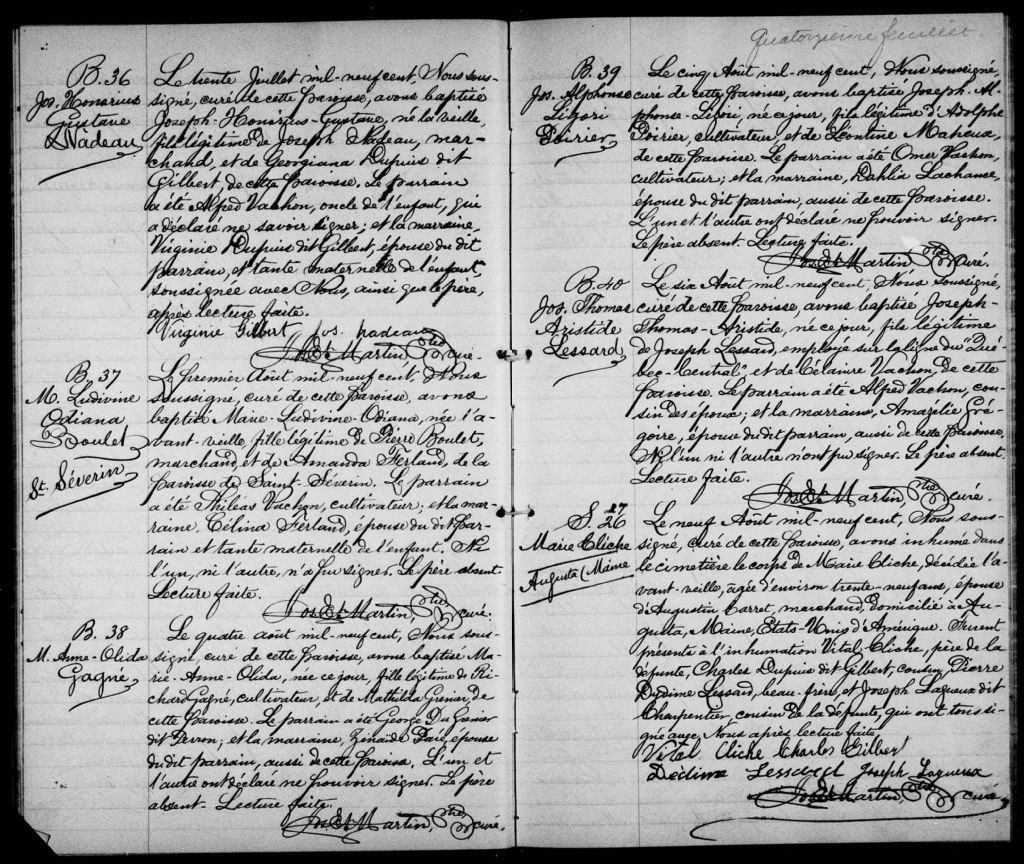 Quatorzième feuillet
B. 36
Jos. Honorius
Gustave
Nadeau
Le trente Juillet mil-neuf cent, Nous sous-
signé, curé de cette Paroisse, avons baptisé
Joseph-Honorius-Gustave, né la veille
fils légitime de Joseph Nadeau, mar-
chand, et de Georgiana Dupuis dit
Gilbert, de cette Paroisse. Le parrain
a été Alfred Vachon, oncle de l'enfant, qui
a déclaré ne savoir signer; et la marraine,
Virginie Dupuis dit Gilbert, épouse du dit
parrain, et tante maternelle de l'enfant,
soussignée avec Nous, ainsi que le père,
après lecture faite.
Virginie Gilbert, Jos. Nadeau
Jos. Et. Martin, Ptre curé.
B. 37
M. Ludivine
Odiana
Boulet
St. Séverin
Le premier Août mil-neuf cent, Nous
soussigné, curé de cette Paroisse, avons
baptisé Marie-Ludivine-Odiana, née l'a-
vant-veille, fille légitime de Pierre Boulet,
marchand, et de Amanda Ferland, de la
Paroisse de Saint-Séverin. Le parrain
a été Philéas Vachon, cultivateur; et la mar-
raine, Célina Ferland, épouse du dit par-
rain et tante maternelle de l'enfant. Ni
l'un, ni l'autre, n'a pu signer. Le père absent.
Lecture faite.
Jos. Et. Martin, Ptre curé.
B. 38
M. Anne-Olida
Gagné
Le quatre août mil-neuf cent, Nous sous-
signé, curé de cette Paroisse, avons baptisé Ma-
rie-Anne-Olida, née ce jour, fille légitime de Ri-
chard Gagné, cultivateur, et de Mathilda Grenier, de
cette Paroisse. Le parrain a été George Du Grenier
dit Perron; et la marraine, Zénaïde Paré, épouse
du dit parrain, aussi de cette Paroisse. L'un et
l'autre ont déclaré ne pouvoir signer. Le père
absent. Lecture faite.
Jos. Et. Martin, Ptre curé.
B. 39
Jos. Alphonse
Ligori
Poirier
Le cinq Août mil-neuf cent, Nous soussigné,
curé de cette Paroisse, avons baptisé Joseph-Al-
phonse-Ligori, né ce jour, fils légitime d'Adolphe
Poirier, cultivateur, et de Léontine Maheux,
de cette Paroisse. Le parrain a été Omer Vachon,
cultivateur; et la marraine, Dahlia Lachance,
épouse du dit parrain, aussi de cette Paroisse.
L'un et l'autre ont déclaré ne pouvoir signer.
Le père absent. Lecture faite.
Jos. Et. Martin, Ptre curé.
B. 40
Jos. Thomas
Aristide
Lessard
Le six Août mil-neuf cent, Nous soussigné,
curé de cette Paroisse, avons baptisé Joseph-
Thomas-Aristide, né ce jour, fils légitime
de Joseph Lessard, employé sur la ligne du "Qué-
bec-Central", et de Célanire Vachon, de cette
Paroisse. Le parrain a été Alfred Vachon, cou-
sin des époux; et la marraine, Amazélie Gré-
goire, épouse du dit parrain, aussi de cette Paroisse.
Ni l'un ni l'autre n'ont pu signer. Le père absent.
Lecture faite.
Jos. Et. Martin, Ptre curé.
27
S. 26
Marie Cliche
Augusta (Maine
Le neuf Août mil-neuf cent, Nous sous-
signé, curé de cette Paroisse, avons inhumé dans
le cimetière le corps de Marie Cliche, décédée l'a-
vant-veille, agée d'environ trente-neuf ans, épouse
d'Augustin Carret, marchand, domicilié à Au-
gusta, Maine, États-Unis d'Amérique. Furent
présents à l'inhumation Vital Cliche, père de la
défunte, Charles Dupuis dit Gilbert, cousin, Pierre
Dydime Lessard, beau-frère, et Joseph Lagueux dit
Charpentier, cousin de la défunte, qui ont tous si-
gné avec Nous après lecture faite.
Vital Cliche Charles Gilbert
Déclime Lessard Joseph Lagueux
Jos. Et. Martin, Ptre curé